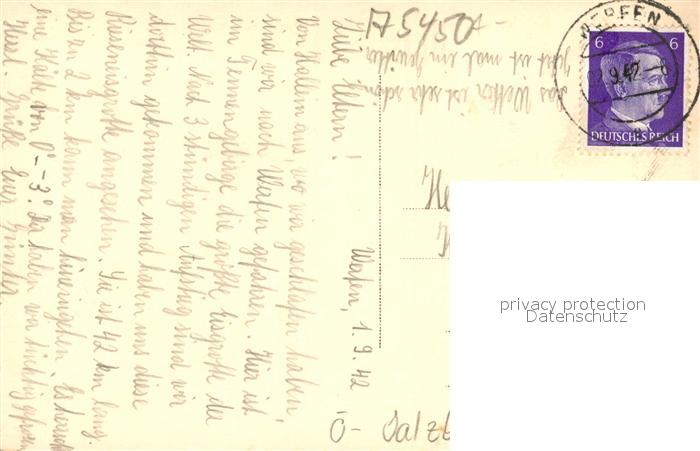 A5450
WERFEN
.9.42.
6 6
DEUTSCHES REICH
Das Wetter ist sehr schön
Jetzt ist mal ein Gewitter
Werfen, 1.9.42
Liebe Eltern!
Von Hallein aus, wo wir geschlafen haben,
sind wir nach Werfen gefahren. Hier ist
im Tennengebirge die größte Eisgrotte der
Welt. Nach 3 stündigen Aufstieg sind wir
dorthin gekommen und haben uns diese
Rieseneisgrotte angesehen. Sie ist 42 km lang.
Bis zu 2 km kann man hineingehen. Es herrscht
eine Kälte von 0° - -3°. Da haben wir tüchtig gefroren
Herzl. Grüße Euer Günter
He
Ö- Salzb
privacy protection
Datenschutz